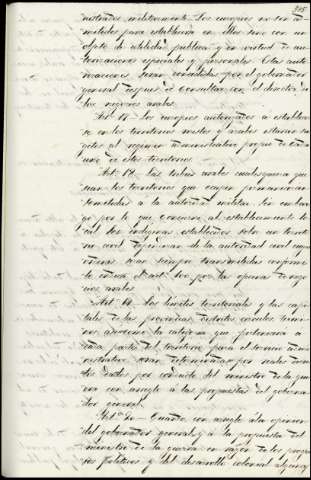 315
nistrados militarmente. Los europeos no son ad-
mitidos para establecerse en ellos sino con un
objeto de utilidad publica y en virtud de au-
torizaciones especiales y personales. Estas auto-
rizaciones seran concedidas por el gobernador
general despues de consultar con el director de
los negocios arabes.
Art. 17. Los europeos autorizados a establecer-
se en los territorios mistos y arabes estaran su-
getos al regimen administrativo propio de cada
uno de estos territorios.
Art. 18. Las tribus arabes cualesquiera que
sean los territorios que ocupen permaneceran
sometidas a la autoridad militar. Sin embar-
go por lo que concierne al establecimiento lo-
cal los indigenas establecidos sobre un territo-
rio civil dependeran de la autoridad civil cuyas
ordenes seran siempre transmitidas conforme
lo indica el art. por los oficiales de nego-
cios arabes.
Art. 19. Los limites territoriales y las capi-
tales de las provincias distritos circulos termi-
nos asi como la categoria que pertenecera a
cada parte del territorio para el termino admi-
nistrativo seran determinadas por reales decre-
tos dados por conducto del ministro de la guer-
ra con arreglo á las propuestas del goberna-
dor general.
Art.º 20. Cuando con arreglo á la opinion
del gobernador general y á la propuesta del
ministro de la guerra en razon de los progre-
sos politicos y del desarrollo colonial alguna